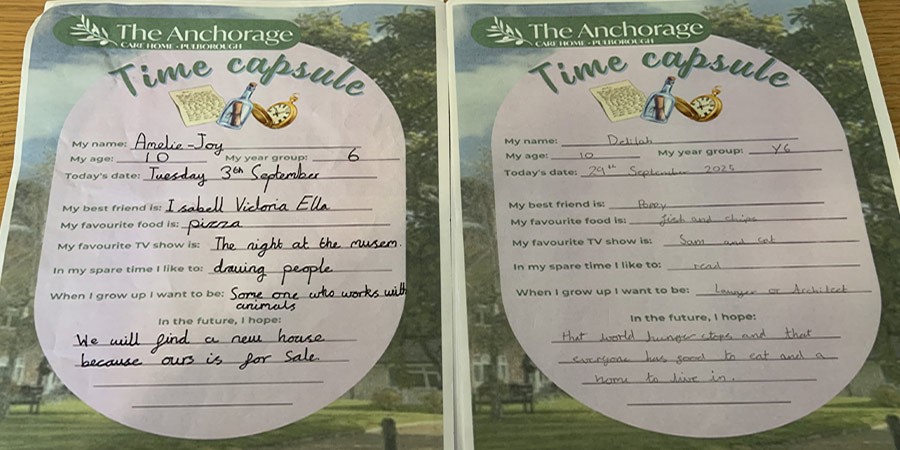 The Anchorage
CARE HOME - PULBOROUGH
Time capsule
My name: Amelie-Joy
My age: 10 My year group: 6
Today's date: Tuesday 3th September
My best friend is: Isabell Victoria Ella
My favourite food is: pizza
My favourite TV show is: The night at the musem.
In my spare time I like to: drawing people
When I grow up I want to be: Some one who works with
animals
In the future, I hope:
We will find a new house
because ours is for sale.
The Anchorage
CARE HOME - PULBOROUGH
Time capsule
My name: Delilah
My age: 10 My year group: Y6
Today's date: 29th September 2025
My best friend is: Poppy
My favourite food is: fish and chips
My favourite TV show is: Sam and cat
In my spare time I like to: read
When I grow up I want to be: Lawyer or Architect
In the future, I hope:
that world hunger stops and that
everyone has food to eat and a
home to live in.